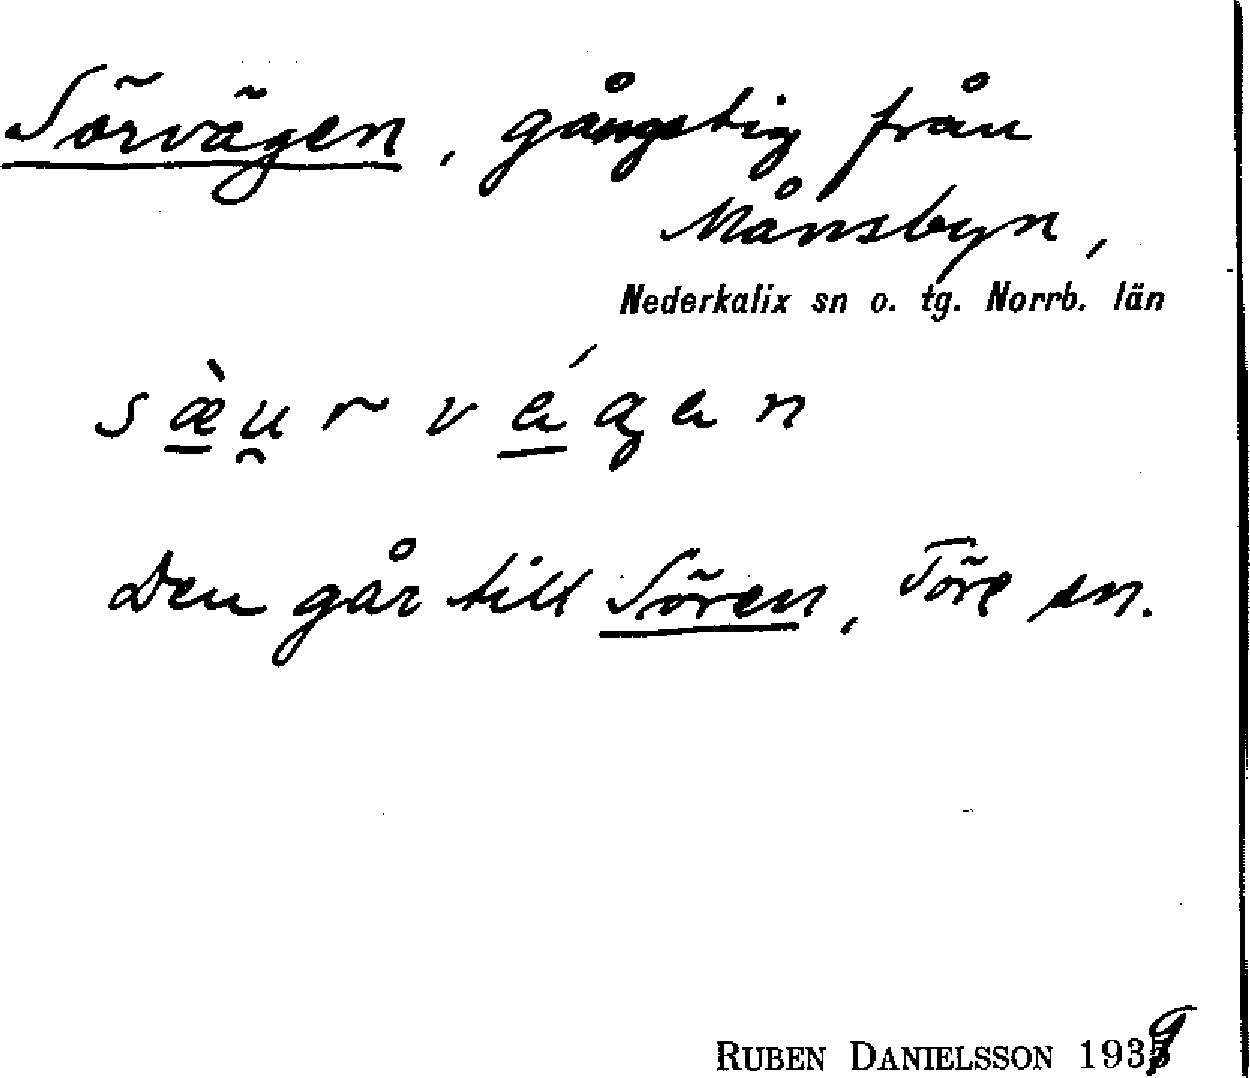 Sörvägen, gångstig från
Månsbyn,
Nederkalix sn o. tg. Norrb. län
sæ̀u̯r vágan
Den går till Sören, Töre sn.
RUBEN DANIELSSON 1939